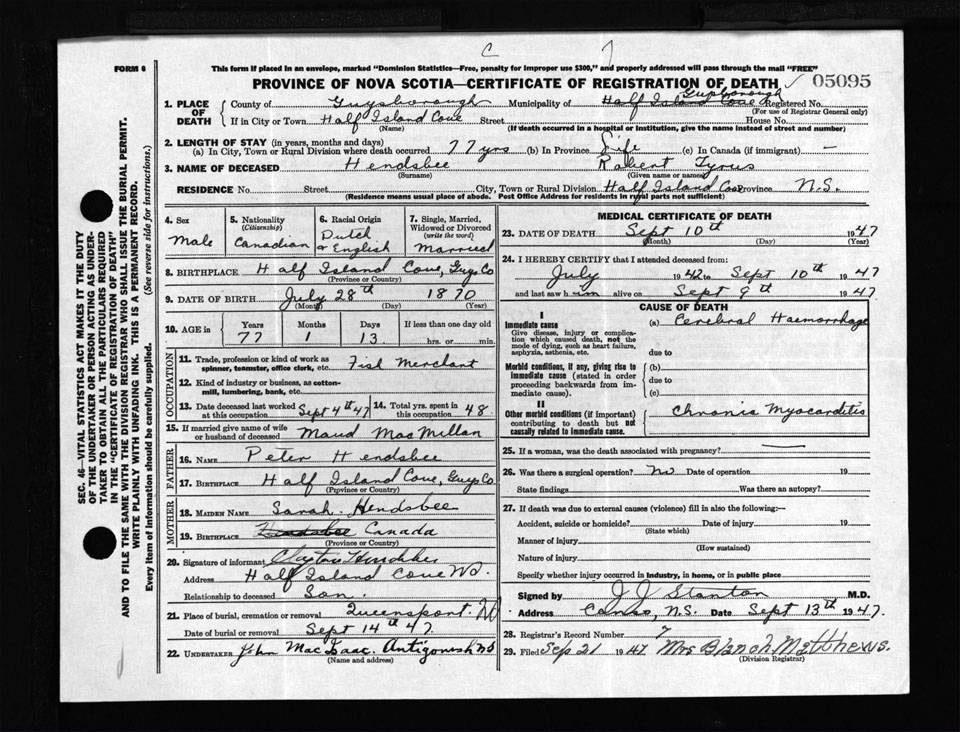 FORM 6
This form if placed in an envelope, marked "Dominion Statistics—Free, penalty for improper use $300," and properly addressed will pass through the mail "FREE"
PROVINCE OF NOVA SCOTIA—CERTIFICATE OF REGISTRATION OF DEATH 05095
1. PLACE OF DEATH
County of Guysborough Municipality of Guysborough Half Island Cove Registered No.
(For use of Registrar General only)
If in City or Town Half Island Cove Street House No.
(Name) (If death occurred in a hospital or institution, give the name instead of street and number)
2. LENGTH OF STAY (in years, months and days)
(a) In City, Town or Rural Division where death occurred 77 yrs (b) In Province Life (c) In Canada (if immigrant) —
3. NAME OF DECEASED Hendsbee Robert Tyrus
(Surname) (Given name or names)
RESIDENCE No. Street City, Town or Rural Division Half Island Cove Province N.S.
(Residence means usual place of abode. Post Office Address for residents in rural parts not sufficient)
4. Sex Male
5. Nationality (Citizenship) Canadian
6. Racial Origin Dutch & English
7. Single, Married, Widowed or Divorced (write the word) Married
8. BIRTHPLACE Half Island Cove, Guys Co
(Province or Country)
9. DATE OF BIRTH July 28th 1870
(Month) (Day) (Year)
10. AGE in Years Months Days If less than one day old
77 1 13 hrs. or min.
OCCUPATION
11. Trade, profession or kind of work as spinner, teamster, office clerk, etc. Fish Merchant
12. Kind of industry or business, as cotton-mill, lumbering, bank, etc.
13. Date deceased last worked at this occupation Sept 4th 47
14. Total yrs. spent in this occupation 48
15. If married give name of wife or husband of deceased Maud MacMillan
FATHER
16. NAME Peter Hendsbee
17. BIRTHPLACE Half Island Cove, Guys Co
(Province or Country)
MOTHER
18. MAIDEN NAME Sarah Hendsbee
19. BIRTHPLACE Hendsbee Canada
(Province or Country)
20. Signature of informant Clayton
Address Half Island Cove NS.
Relationship to deceased Son.
21. Place of burial, cremation or removal Queensport. NS
Date of burial or removal Sept 14th 47
22. UNDERTAKER John MacIsaac. Antigonish NS
(Name and address)
MEDICAL CERTIFICATE OF DEATH
23. DATE OF DEATH Sept 10th 1947
(Month) (Day) (Year)
24. I HEREBY CERTIFY that I attended deceased from:
July 1942 to Sept 10th 1947
and last saw him alive on Sept 9th 1947
CAUSE OF DEATH
I
Immediate cause (a) Cerebral Haemorrhage
Give disease, injury or complication which caused death, not the mode of dying, such as heart failure, asphyxia, asthenia, etc.
due to
Morbid conditions, if any, giving rise to immediate cause (stated in order proceeding backwards from immediate cause).
(b)
due to
(c)
II
Other morbid conditions (if important) contributing to death but not causally related to immediate cause.
Chronic Myocarditis
25. If a woman, was the death associated with pregnancy?
26. Was there a surgical operation? No Date of operation 19
State findings Was there an autopsy?
27. If death was due to external causes (violence) fill in also the following:—
Accident, suicide or homicide? Date of injury 19
(State which)
Manner of injury
(How sustained)
Nature of injury
Specify whether injury occurred in industry, in home, or in public place
Signed by J J Stanton M.D.
Address Canso, N.S. Date Sept 13th 1947.
28. Registrar's Record Number 7
29. Filed Sep 21 1947 Mrs Blanch Matthews.
(Division Registrar)
SEC. 46—VITAL STATISTICS ACT MAKES IT THE DUTY
OF THE UNDERTAKER OR PERSON ACTING AS UNDER-
TAKER TO OBTAIN ALL THE PARTICULARS REQUIRED
IN THE "CERTIFICATE OF REGISTRATION OF DEATH"
AND TO FILE THE SAME WITH THE DIVISION REGISTRAR WHO SHALL ISSUE THE BURIAL PERMIT.
WRITE PLAINLY WITH UNFADING INK. THIS IS A PERMANENT RECORD.
Every item of information should be carefully supplied. (See reverse side for instructions.)